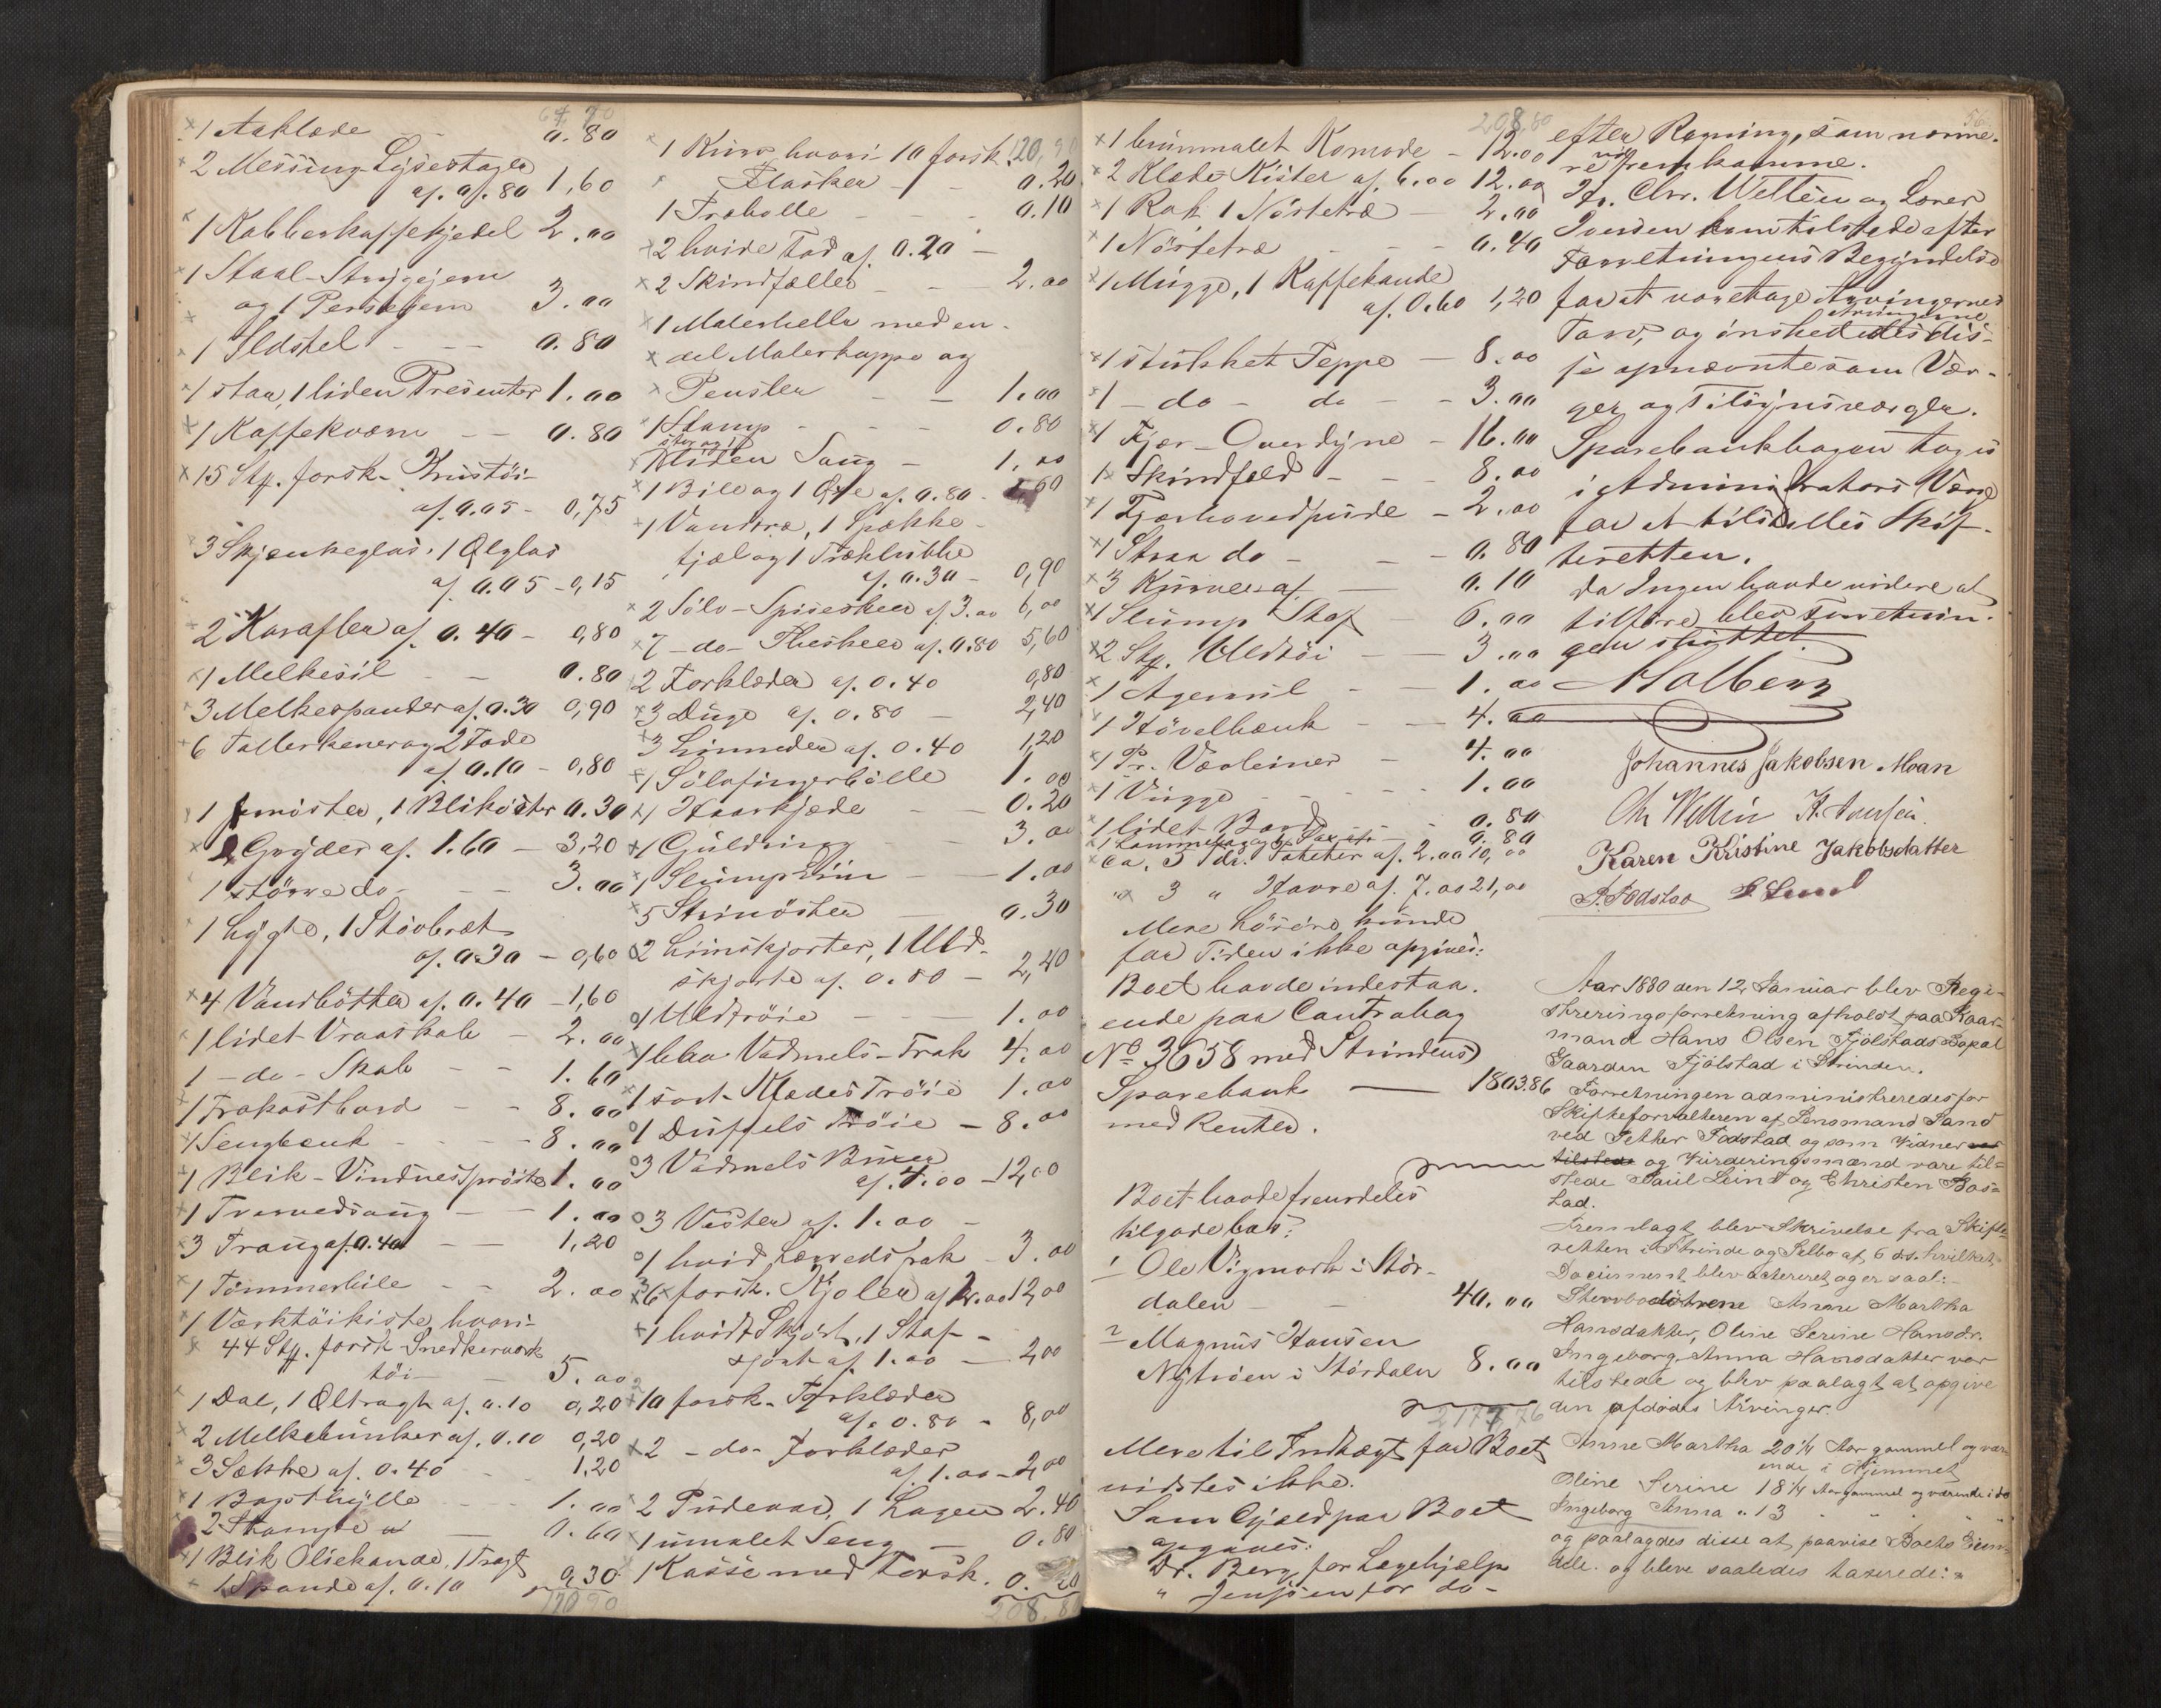 67,90
1 Aaklæde - 0.80
2 Messing Lysestager
af. 0.80 1,60
1 Kobberkaffekjedel 2.00
1 Staal-Strygejern
og 1 Persejern 3.00
1 Ildstel - - - 0.80
1 stor, 1 liden Presenter 1.00
1 Kaffekværn - - 0.80
15 Stk. forsk. Krustöi
af. 0.05 - 0,75
3 Skjænkeglas, 1 Ølglas
af 0.05 - 0,15
2 Karafler af 0.40 - 0,80
1 Melkesil - - 0.80
3 Melkespander af. 0.30 0,90
6 Tallerkener og 2 Fade
af 0.10 - 0,80
1 öster, 1 Bliköster 0.30
2 Gryder af. 1.60 - 3,20
1 större do - - - 3.00
1 Lygte, 1 Stövbræt
af. 0.30 - 0,60
4 Vandbötter af. 0.40 - 1,60
1 lidet Vraaskab - 2.00
1 - do - Skab - - 1.60
1 Frokostbord - - 8.00
1 Sengbænk - - - 8.00
1 Blik-Vindues 1.00
1 Tværvedsaug - - 1.00
3 Traug af. 0.40 - - 1,20
1 Tömmerbile - - 2.00
1 Værktöikiste, hvori
44 Stk. forsk Snedkerværk
töi - - 5.00
1 Dal, 1 Øltragt af. 0.10 0,20
2 Melkebunker af. 0.10 0,20
3 Sække af. 0.40 - 1,20
1 Bagsthylle - - 1.00
2 Stampe - 0.60
1 Blik Oliekande, 1 Tragt
1 Spande af. 0.10 0,30
120 90
120,90
1 Kurv hvori 10 forsk.
Flasker - - 0.20
1 Træbolle - - - 0.10
2 hvide Fad af. 0.20 -
2 Skindfæller - - 2.00
1 Malerhelle med en
del Malerkoppe og
Pensler - - 1.00
1 Stamp - - - 0.80
stor og 1
liden Saug - 1.00
1 Bile og 1 Øxe af. 0.80 - 1,60
1 Vandtræ, 1 Spække-
fjæl og 1 Træklubbe
af. 0.30 - 0,90
2 Sölv-Spiseskeer af. 3.00 6,00
7 - do - Theskeer af. 0.80 5,60
2 Forklæder af. 0.40 0,80
3 Duge af. 0.80 - 2,40
3 Linneder af. 0.40 1,20
1 Sölvfingerbölle 1.00
1 Haarkjæde - - 0.20
1 Guldring - - 3.00
1 Slump Liin - - 1.00
5 Striöster - 0.30
2 Liinskjorter, 1 Uld-
skjorte af. 0.80 - 2,40
1 Uldtröie - - - 1.00
1 blaa Vadmels-Frak 4.00
1 sort Klædes Tröie 1.00
1 Duffels Tröie - 8.00
3 Vadmels Buxer
af. 4.00 - 12,00
3 Vester af. 1.00 -
1 hvid Lærredsfrak - 3.00
6 forsk. Kjoler af 2.00 12,00
1 hvidt Skjört, 1 Staf-
sjört af. 1.00 - 2,00
10 forsk. Forklæder
af. 0.80 - 8,00
2 - do - Forklæder
af 1.00 - 2,00
2 Pudevar, 1 Lagen 2.40
1 umalet Seng - 0.80
1 Kasse med forsk. 0.20
208,80
208,80
1 brunmalet Komode - 12.00
2 Klæde Kister af. 6.00 12.00
1 Rok 1 Nöstetræ - 2.00
1 Nöstetræ - - - 0.40
1 Mugge, 1 Kaffekande
af. 0.60 1,20
1 stukket Teppe - 8.00
1 - do - do - - 3.00
1 Fjær-Overdyne - 16.00
1 Skindfeld - - - 8.00
1 Fjærhovedpude - 2.00
1 Straa do - - 0.80
3 Kurver af - 0.10
1 Slump Stof - 6.00
2 Stk. Uldtöi - - 3.00
1 Agemul - - 1.00
1 Hövelbænk - - 4.00
1 Pr. Vævleiner - 4.00
1 Vugge - - - - 1.00
1 lidet Bord - - 0.80
1 Lammesax og 1 Sax - 0.80
Ca. 5 do. Poteter af. 2.00 10,00
" 3 " Havre af. 7.00 21,00
Mere Lösöre kunde
for Tiden ikke opgives:
Boet havde indestaa-
ende paa Contrabog
No 3658 med Strindens
Sparebank - 1803.86
med Renter.
Boet havde fremdeles
tilgode hos:
1 Ole Vigmork i Stör-
dalen - - 40.00
2 Magnus Hansen
Nytröen i Stördalen 8.00
2177,76
Mere til Indtægt for Boet
vidstes ikke.
Som Gjæld paa Boet
opgaves:
Dr. Berg for Lægehjælp
" Jenssen for do -
56
efter Regning, som nærme-
re vil fremkomme.
Hr. Chr. Wettin og Lorer
Svendsen kom tilstede efter
Forretningens Begyndelse
for at varetage Arvingernes
Arvingerne
Tarv, og önskede at dis-
se opnævntes som Vær-
ger og Tilsynsværger.
Sparebankbogen toges
i Administrators Værge
for at tilstilles Skif-
teretten.
Da Ingen havde videre at
tilföre blev Forretnin-
gen sluttet.
Holberg
Johannes Jakobsen Moan
Chr Wettin K. Hansen
Karen Kristine Jakobsdatter
P. Fodstad P Lund
Aar 1880 den 12 Januar blev Regi-
streringsforretning afholdt paa Kaar-
mand Hans Olsen Fjölstads Bopæl
Gaarden Fjölstad i Strinden.
Forretningen administreredes for
Skifteforvalteren af Lensmand Sand
ved Petter Fodstad og som Vidner
tilstede og Vurderingsmænd vare til-
stede Paul Lund og Christen Bos-
tad.
Fremlagt blev Skrivelse fra Skifte-
retten i Strinde og Selbo af 6 ds. hvilket
Document blev acteret og er saal:
Stervbodöttrene Anne Martha
Hansdatter, Oline Serine Hansdr.
Ingeborg Anna Hansdatter var
tilstede og blev paalagt at opgive
den afdödes Arvinger.
Anne Martha 20 1/4 Aar gammel og vær-
ende i Hjemmet
Oline Serine 18 1/4 Aar gammel og værende i do
Ingeborg Anna " 13 " " "
og paalagdes disse at paavise Boets Eien-
dele. og bleve saaledes taxerede: "